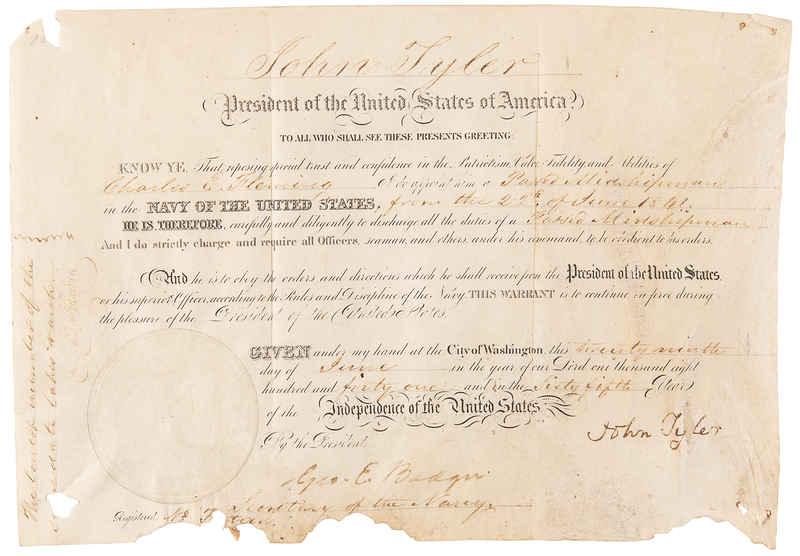 John Tyler
President of the United States of America,
TO ALL WHO SHALL SEE THESE PRESENTS GREETING:
KNOW YE, That reposing special trust and confidence in the Patriotism, Valor, Fidelity, and Abilities of
Charles S. Fleming I do appoint him a Passed Midshipman
in the NAVY OF THE UNITED STATES, from the 22d of June 1841.
HE IS THEREFORE, carefully and diligently to discharge all the duties of a Passed Midshipman
And I do strictly charge and require all Officers, seaman, and others, under his command, to be obedient to his orders.
And he is to obey the orders and directions which he shall receive from the President of the United States,
or his superior Officer, according to the Rules and Discipline of the Navy. THIS WARRANT is to continue in force during
the pleasure of the President of the United States.
GIVEN under my hand at the City of Washington, this twenty ninth
day of June in the year of our Lord one thousand eight
hundred and forty one and in the Sixty fifth Year
of the Independence of the United States.
By the President
John Tyler
Geo. E. Badger
Secretary of the Navy
Registered No
The lowest number of the